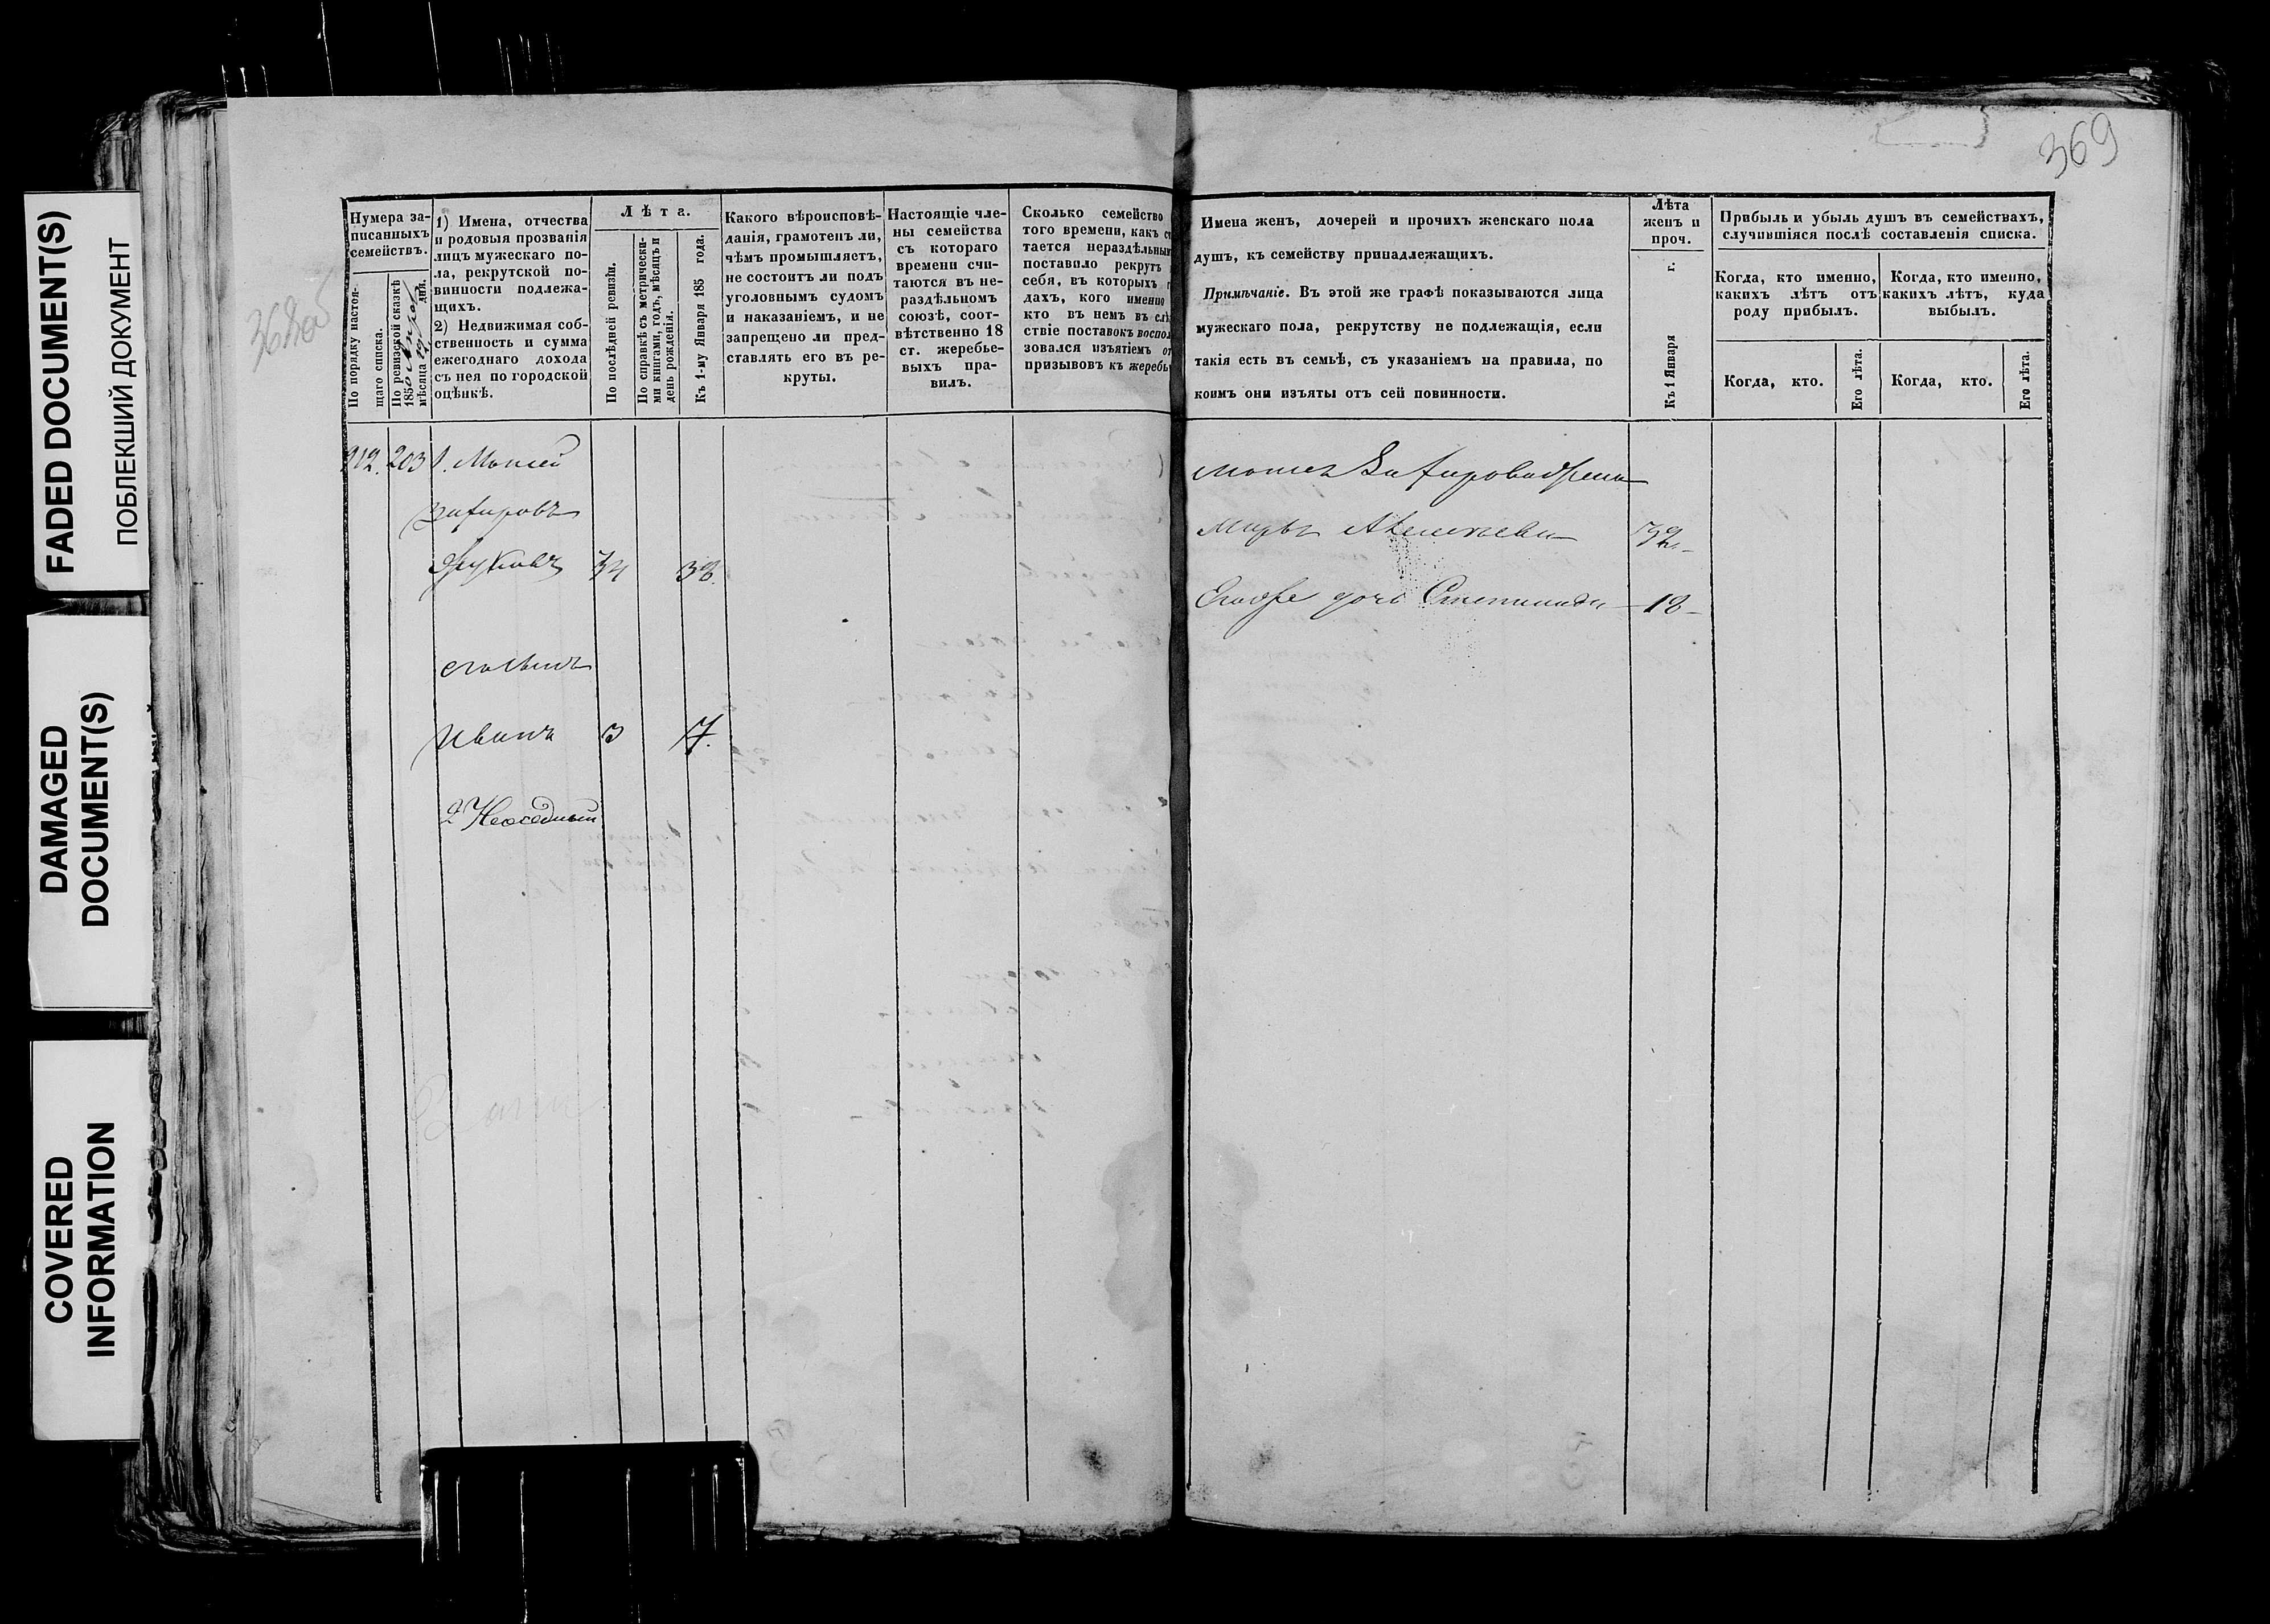 FADED DOCUMENT(S)
ПОБЛЕКШИЙ ДОКУМЕНТ
DAMAGED
DOCUMENT(S)
COVERED
INFORMATION
369
Нумера за-
писанныхъ
семействъ.
По порядку настоя-
щаго списка.
По ревизской сказкѣ
1850
мѣсяца дня.
1) Имена, отчества
и родовыя прозванія
лицъ мужескаго по-
ла, рекрутской по-
винности подлежа-
щихъ.
2) Недвижимая соб-
ственность и сумма
ежегоднаго дохода
съ нея по городской
оцѣнкѣ.
Лѣта.
По послѣдней ревизіи.
По справкѣ съ метрически-
ми книгами, годъ, мѣсяцъ и
день рожденія.
Къ 1-му Января 185 года.
Какого вѣроисповѣ-
данія, грамотенъ ли,
чѣмъ промышляетъ,
не состоитъ ли подъ
уголовнымъ судомъ
и наказаніемъ, и не
запрещено ли пред-
ставлять его въ ре-
круты.
Настоящіе чле-
ны семейства
съ котораго
времени счи-
таются въ не-
раздѣльномъ
союзѣ, соот-
вѣтственно 18
ст. жеребье-
выхъ пра-
вилъ.
Сколько семейство
того времени, какъ
тается нераздѣльным
поставило рекрутъ
себя, въ которыхъ
дахъ, кого именно
кто въ немъ въ слѣ
ствіе поставокъ воспол
зовался изъятіемъ от
призывовъ къ жеребь
Имена женъ, дочерей и прочихъ женскаго пола
душъ, къ семейству принадлежащихъ.
Примѣчаніе. Въ этой же графѣ показываются лица
мужескаго пола, рекрутству не подлежащія, если
такія есть въ семьѣ, съ указаніемъ на правила, по
коимъ они изъяты отъ сей повинности.
Лѣта
женъ и
проч.
Къ 1 Января г.
Прибыль и убыль душъ въ семействахъ,
случившіяся послѣ составленія списка.
Когда, кто именно,
какихъ лѣтъ отъ
роду прибылъ.
Когда, кто именно,
какихъ лѣтъ, куда
выбылъ.
Когда, кто.
Его лѣта.
Когда, кто.
Его лѣта.
912. 203 1. Моисей
34 38.
его сынъ
Иванъ 3 7.
2 Неоседлый
32
дочь 18